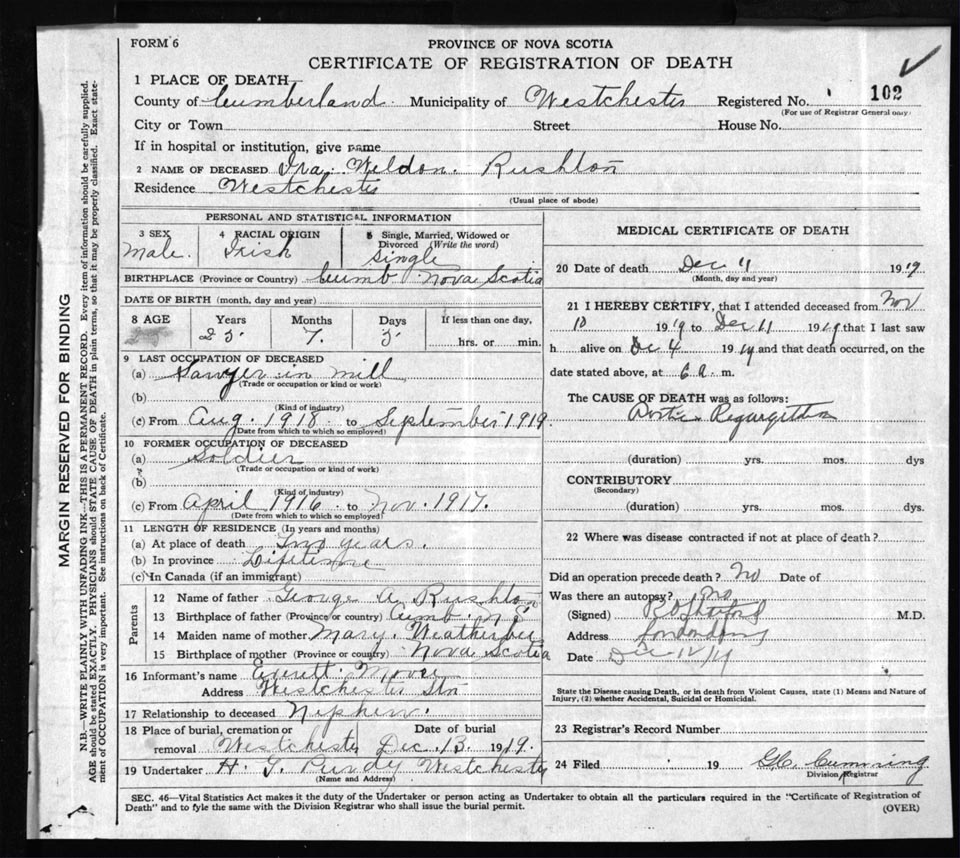 FORM 6
PROVINCE OF NOVA SCOTIA
CERTIFICATE OF REGISTRATION OF DEATH
1 PLACE OF DEATH—
County of Cumberland Municipality of Westchester Registered No. 102
(For use of Registrar General only)
City or Town Street House No.
If in hospital or institution, give name
2 NAME OF DECEASED Ira Weldon Rushton
Residence Westchester
(Usual place of abode)
PERSONAL AND STATISTICAL INFORMATION
3 SEX 4 RACIAL ORIGIN 5 Single, Married, Widowed or Divorced (Write the word)
Male. Irish Single
BIRTHPLACE (Province or Country) Cumb Nova Scotia
DATE OF BIRTH (month, day and year)
8 AGE Years Months Days If less than one day,
23 7 3 hrs. or min.
9 LAST OCCUPATION OF DECEASED
(a) Sawyer in mill
(Trade or occupation or kind or work)
(b)
(Kind of industry)
(c) From Aug. 1918 to September 1919
(Date from which to which so employed)
10 FORMER OCCUPATION OF DECEASED
(a) Soldier
(Trade or occupation or kind of work)
(b)
(Kind of industry)
(c) From April 1916 to Nov. 1917.
(Date from which to which so employed)
11 LENGTH OF RESIDENCE (In years and months)
(a) At place of death Two years.
(b) In province Lifetime
(c) In Canada (if an immigrant)
Parents
12 Name of father George A Rushton
13 Birthplace of father (Province or country) Cumb. N S
14 Maiden name of mother Mary Weatherbee
15 Birthplace of mother (Province or country) Nova Scotia
16 Informant's name Everett
Address Westchester Stn
17 Relationship to deceased Nephew.
18 Place of burial, cremation or removal Date of burial
Westchester Dec. 13. 1919.
19 Undertaker H. G. Purdy Westchester
(Name and Address)
MEDICAL CERTIFICATE OF DEATH
20 Date of death Dec 11 1919
(Month, day and year)
21 I HEREBY CERTIFY, that I attended deceased from Nov
10 1919 to Dec 11 1919 that I last saw
h alive on Dec 4 1919 and that death occurred, on the
date stated above, at 6 a. m.
The CAUSE OF DEATH was as follows:
Aortic Regurgitation
(duration) yrs. mos. dys
CONTRIBUTORY
(Secondary)
(duration) yrs. mos. dys.
22 Where was disease contracted if not at place of death?
Did an operation precede death? No Date of
Was there an autopsy? no
(Signed) M.D.
Address Londonderry
Date Dec 12/19
State the Disease causing Death, or in death from Violent Causes, state (1) Means and Nature of
Injury, (2) whether Accidental, Suicidal or Homicidal.
23 Registrar's Record Number
24 Filed 19 G.C. Cumming
Division Registrar
SEC. 46—Vital Statistics Act makes it the duty of the Undertaker or person acting as Undertaker to obtain all the particulars required in the "Certificate of Registration of
Death" and to fyle the same with the Division Registrar who shall issue the burial permit. (OVER)
MARGIN RESERVED FOR BINDING
N.B.—WRITE PLAINLY WITH UNFADING INK—THIS IS A PERMANENT RECORD. Every item of information should be carefully supplied.
AGE should be stated EXACTLY. PHYSICIANS should STATE CAUSE OF DEATH in plain terms, so that it may be properly classified. Exact state-
ment of OCCUPATION is very important. See instructions on back of Certificate.